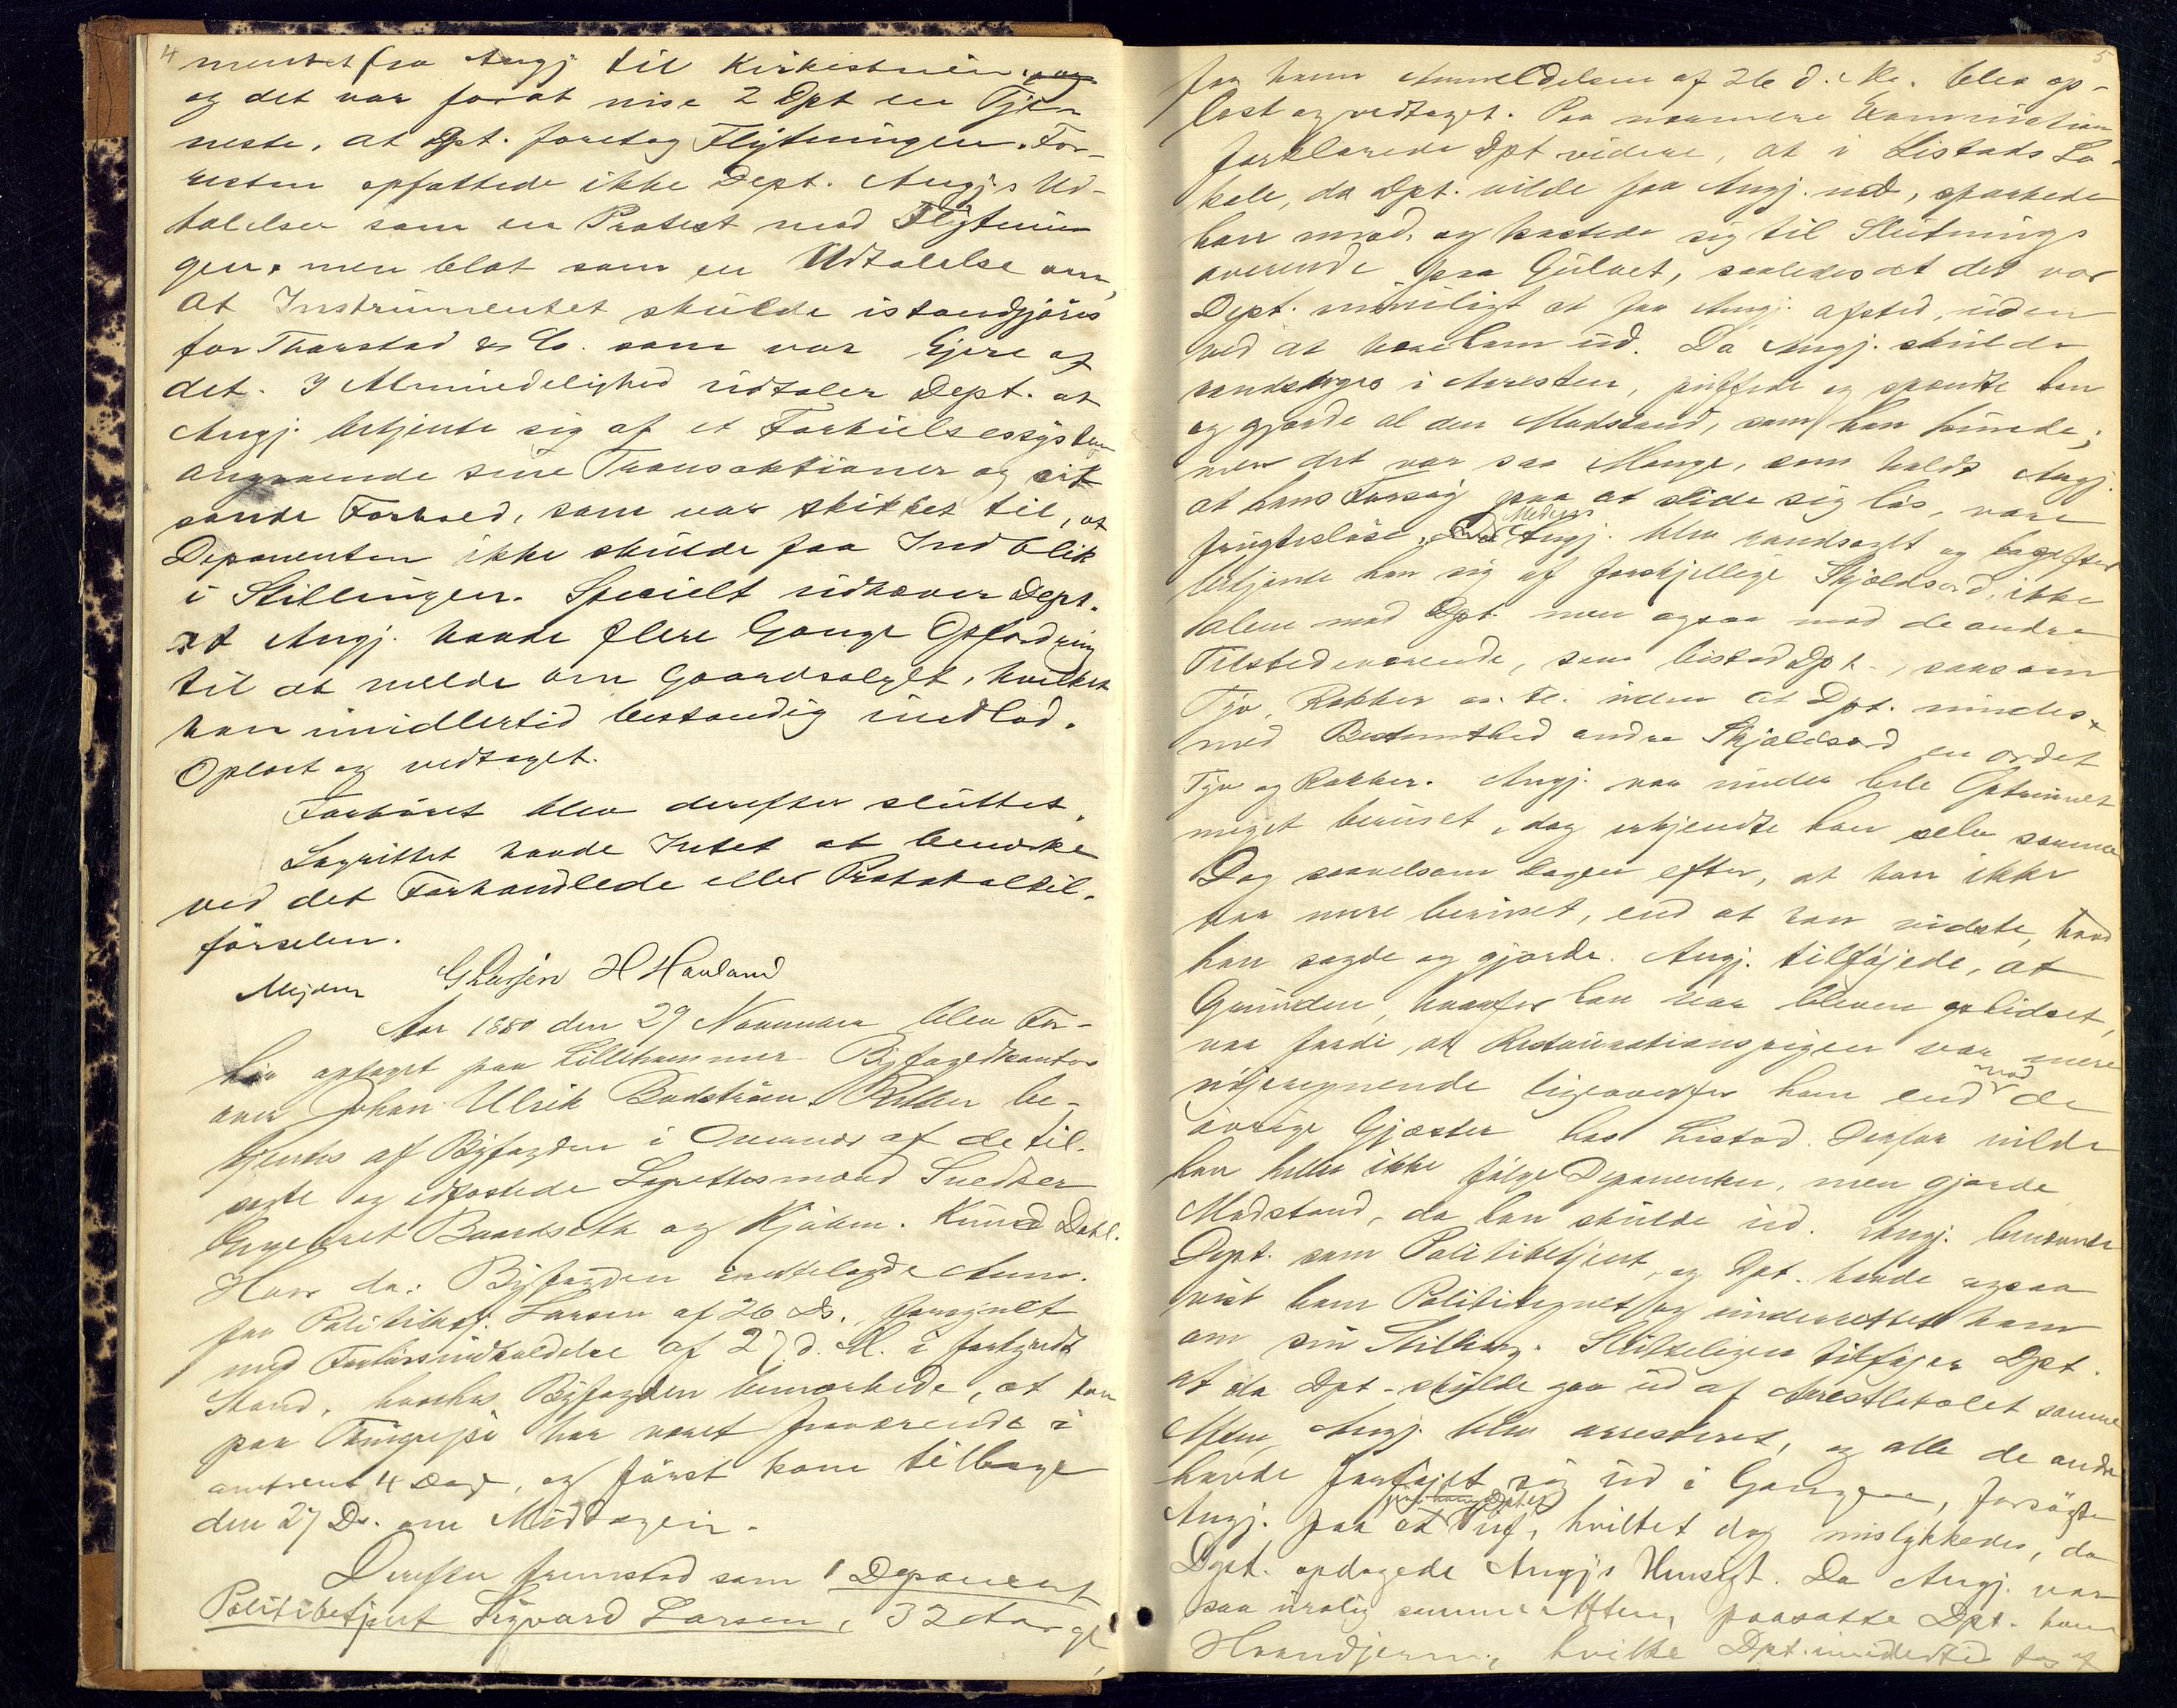 4
mentet fra Angj til Kirkestuen,
og det var for at vise 2 Dpt en Tje-
neste, at Dpt. foretog Flytningen. For-
resten opfattede ikke Dept. Angjs Ud-
talelser som en Protest mod Flytnin
gen, men blot som en Udtalelse om,
at Instrumentet skulde istandgjøres
for Thorstad & Co. som var Ejere af
det. I Almindelighed udtaler Dept. at
Angj. betjente sig af et Forhielsessystem
angaaende sine Transaktioner og sit
sande Forhold, som var skikket til, at
Deponenten ikke skulde faa Indblik
i Stillingen. Specielt udhæver Dept.
at Angj. havde flere Gange Opfordring
til at melde om Gaardsalget, hvilket
han imidlertid bestandig undlod.
Oplæst og vedtaget.
Forhøret blev derefter sluttet.
Lagrettet havde Intet at bemærke
ved det Forhandlede eller Protokoltil-
førselen.
G Larsen H Havland
Aar 1880 den 29 November blev For-
hør optaget paa Lillehammer Byfogedkontor
over Johan Ulrik Budstrøm. Retten be-
tjentes af Byfogden i Overvær af de til-
sagte og edfæstede Lagrettesmænd Snedker
Engebret Baardseth og Kjøbm. Knud Dahl.
Hvor da: Byfogden fremlagde Anm.
fra Politibetj. Larsen af 26 Ds., forsynet
med Forhørsindkaldelse af 27 d. M. i forkyndt
Stand, hvorhos Byfogden bemærkede, at han
paa Thingrejse har været fraværende i
omtrent 4 Dage, og først kom tilbage
den 27 Ds. om Middagen.
Derefter fremstod som 1 Deponent
Politibetjent Sigvard Larsen, 32 Aar gl,
5
for ham Anmeldelsen af 26 d. M. blev op-
læst og vedtaget. Paa nærmere Examination
forklarede Dpt videre, at i Listads Lo-
kale, da Dpt. vilde faa Angj. ud, sparkede
han mod, og kastede sig til Slutnings
overende paa Gulvet, saaledes at det var
Dept. umuligt at faa Angj. afsted, uden
ved at bære ham ud. Da Angj. skulde
randsages i Arresten, puffede og spændte han
og gjorde al den Modstand, som han kunde;
men det var saa Mange, som holdt Angj.
at hans Forsøg paa at slide sig løs, vare
frugtesløse. Medens Angj. blev randsaget og bagefter
betjente han sig af forskjellige Skjældsord, ikke
alene mod Dpt men ogsaa mod de andre
Tilstedeværende, som bistod Dpt., saasom
Tyv, Rakker o. l. uden at Dpt. mindes
med Bestemthed andre Skjældsord en ordet
Tyv og Rakker. Angj. var under hele Optrinnet
meget beruset, dog erkjendte han selv samme
Dag saavelsom Dagen efter, at han ikke
var mere beruset, end at han vidste, hvad
han sagde og gjorde. Angj. tilføjede, at
Grunden, hvorfor han var bleven ophidset,
var fordi at Restaurationspigen var mere
nøjeregnende ligeoverfor ham end mod de
øvrige Gjæster hos Listad. Derfor vilde
han heller ikke følge Deponenten, men gjorde
Modstand, da han skulde ud. Angj. benævnte
Dept. som Politibetjent, og Dpt. havde ogsaa
vist ham Polititegnet og underrettet ham
om sin Stilling. Slutteligen tilføjer Dpt.
at da Dpt. skulde gaa ud af Arrestlokalet samme
Aften Angj. blev arresteret, og alle de andre
havde forføjet sig ud i Gangen, forsøgte
Angj. paa at Puf, hvilket dog mislykkedes, da
Dpt. opdagede Angjs Hensigt. Da Angj. var
saa urolig samme Aften, paasatte Dpt. ham
Haandjern, hvilke Dpt. imidlertid tog af